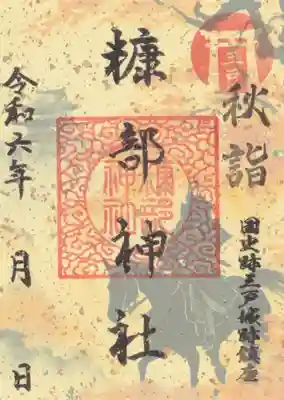 秋詣
国史跡三戸城跡鎮座
糠部神社
令和六年 月 日